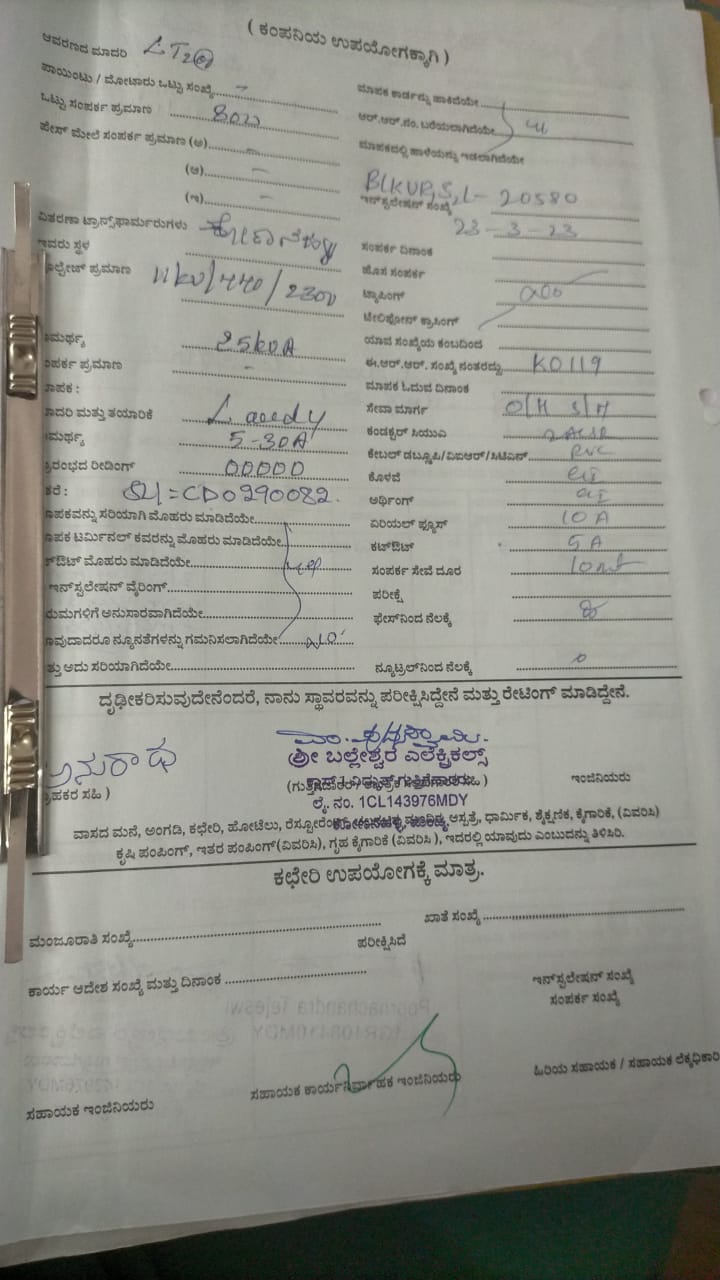 ( ಕಂಪನಿಯ ಉಪಯೋಗಕ್ಕಾಗಿ )
ಆವರಣದ ಮಾದರಿ LT2(a)
ಪಾಯಿಂಟು / ಮೋಟಾರು ಒಟ್ಟು ಸಂಖ್ಯೆ -
ಒಟ್ಟು ಸಂಪರ್ಕ ಪ್ರಮಾಣ 80w
ಫೇಸ್ ಮೇಲೆ ಸಂಪರ್ಕ ಪ್ರಮಾಣ (ಅ) -
(ಆ) -
(ಇ) -
ವಿತರಣಾ ಟ್ರಾನ್ಸ್‌ಫಾರ್ಮರುಗಳು
ಇವರು ಸ್ಥಳ
ಓಲ್ಟೇಜ್ ಪ್ರಮಾಣ 11kv/440/230v
ಮರ್ಥ್ಯ 25kVA
ಂಪರ್ಕ ಪ್ರಮಾಣ -
ಾಪಕ :
ಾದರಿ ಮತ್ತು ತಯಾರಿಕೆ
ಮರ್ಥ್ಯ 5-30A
್ರಾರಂಭದ ರೀಡಿಂಗ್ 00000
ತರೆ : Sl=CD0290082.
ಾಪಕವನ್ನು ಸರಿಯಾಗಿ ಮೊಹರು ಮಾಡಿದೆಯೇ
ಾಪಕ ಟರ್ಮಿನಲ್ ಕವರನ್ನು ಮೊಹರು ಮಾಡಿದೆಯೇ
ಟ್‌ಔಟ್ ಮೊಹರು ಮಾಡಿದೆಯೇ
ಇನ್‌ಸ್ಟಲೇಷನ್ ವೈರಿಂಗ್
ಯಮಗಳಿಗೆ ಅನುಸಾರವಾಗಿದೆಯೇ
ಾವುದಾದರೂ ನ್ಯೂನತೆಗಳನ್ನು ಗಮನಿಸಲಾಗಿದೆಯೇ No
ತ್ತು ಅದು ಸರಿಯಾಗಿದೆಯೇ
ಮಾಪಕ ಕಾರ್ಡನ್ನು ಹಾಕಿದೆಯೇ
ಆರ್.ಆರ್.ನಂ. ಬರೆಯಲಾಗಿದೆಯೇ
ಮಾಪಕದಲ್ಲಿ ಹಾಳೆಯನ್ನು ಇಡಲಾಗಿದೆಯೇ
BLKUP,S,L- 20580
ಇನ್‌ಸ್ಟಲೇಷನ್ ಸಂಖ್ಯೆ
23-3-23
ಸಂಪರ್ಕ ದಿನಾಂಕ
ಹೊಸ ಸಂಪರ್ಕ
ಟ್ಯಾಪಿಂಗ್
ಟೆಲಿಫೋನ್ ಕ್ರಾಸಿಂಗ್
ಯಾವ ಸಂಖ್ಯೆಯ ಕಂಬದಿಂದ
ಈ.ಆರ್.ಆರ್. ಸಂಖ್ಯೆ ನಂತರದ್ದು K0119
ಮಾಪಕ ಓದುವ ದಿನಾಂಕ
ಸೇವಾ ಮಾರ್ಗ O/H S/M
ಕಂಡಕ್ಟರ್ ಸಿಯುಎ
ಕೇಬಲ್ ಡಬ್ಲೂಪಿ/ವಿಐಆರ್/ಸಿಟಿಎಸ್ PVC
ಕೊಳವೆ GI
ಅರ್ಥಿಂಗ್ GI
ಏರಿಯಲ್ ಫ್ಯೂಸ್ 10 A
ಕಟ್‌ಔಟ್ 5 A
ಸಂಪರ್ಕ ಸೇವೆ ದೂರ 10mt
ಪರೀಕ್ಷೆ
ಫೇಸ್‌ನಿಂದ ನೆಲಕ್ಕೆ
ನ್ಯೂಟ್ರಲ್‌ನಿಂದ ನೆಲಕ್ಕೆ 0
ದೃಢೀಕರಿಸುವುದೇನೆಂದರೆ, ನಾನು ಸ್ಥಾವರವನ್ನು ಪರೀಕ್ಷಿಸಿದ್ದೇನೆ ಮತ್ತು ರೇಟಿಂಗ್ ಮಾಡಿದ್ದೇನೆ.
ಅನುರಾಧ
ಶ್ರೀ ಬಲ್ಲೇಶ್ವರ ಎಲೆಕ್ಟ್ರಿಕಲ್ಸ್
್ರಾಹಕರ ಸಹಿ )
ಇಂಜಿನಿಯರು
ಲೈ. ನಂ. 1CL143976MDY
ವಾಸದ ಮನೆ, ಅಂಗಡಿ, ಕಛೇರಿ, ಹೋಟೆಲು, ಆಸ್ಪತ್ರೆ, ಧಾರ್ಮಿಕ, ಶೈಕ್ಷಣಿಕ, ಕೈಗಾರಿಕೆ, (ವಿವರಿಸಿ)
ಕೃಷಿ ಪಂಪಿಂಗ್, ಇತರ ಪಂಪಿಂಗ್(ವಿವರಿಸಿ), ಗೃಹ ಕೈಗಾರಿಕೆ (ವಿವರಿಸಿ ), ಇದರಲ್ಲಿ ಯಾವುದು ಎಂಬುದನ್ನು ತಿಳಿಸಿರಿ.
ಕಛೇರಿ ಉಪಯೋಗಕ್ಕೆ ಮಾತ್ರ.
ಮಂಜೂರಾತಿ ಸಂಖ್ಯೆ
ಖಾತೆ ಸಂಖ್ಯೆ
ಪರೀಕ್ಷಿಸಿದೆ
ಕಾರ್ಯ ಆದೇಶ ಸಂಖ್ಯೆ ಮತ್ತು ದಿನಾಂಕ
ಇನ್‌ಸ್ಟಲೇಷನ್ ಸಂಖ್ಯೆ
ಸಂಪರ್ಕ ಸಂಖ್ಯೆ
ಸಹಾಯಕ ಇಂಜಿನಿಯರು
ಸಹಾಯಕ ಕಾರ್ಯನಿರ್ವಾಹಕ ಇಂಜಿನಿಯರು
ಹಿರಿಯ ಸಹಾಯಕ / ಸಹಾಯಕ ಲೆಕ್ಕಾಧಿಕಾರಿ